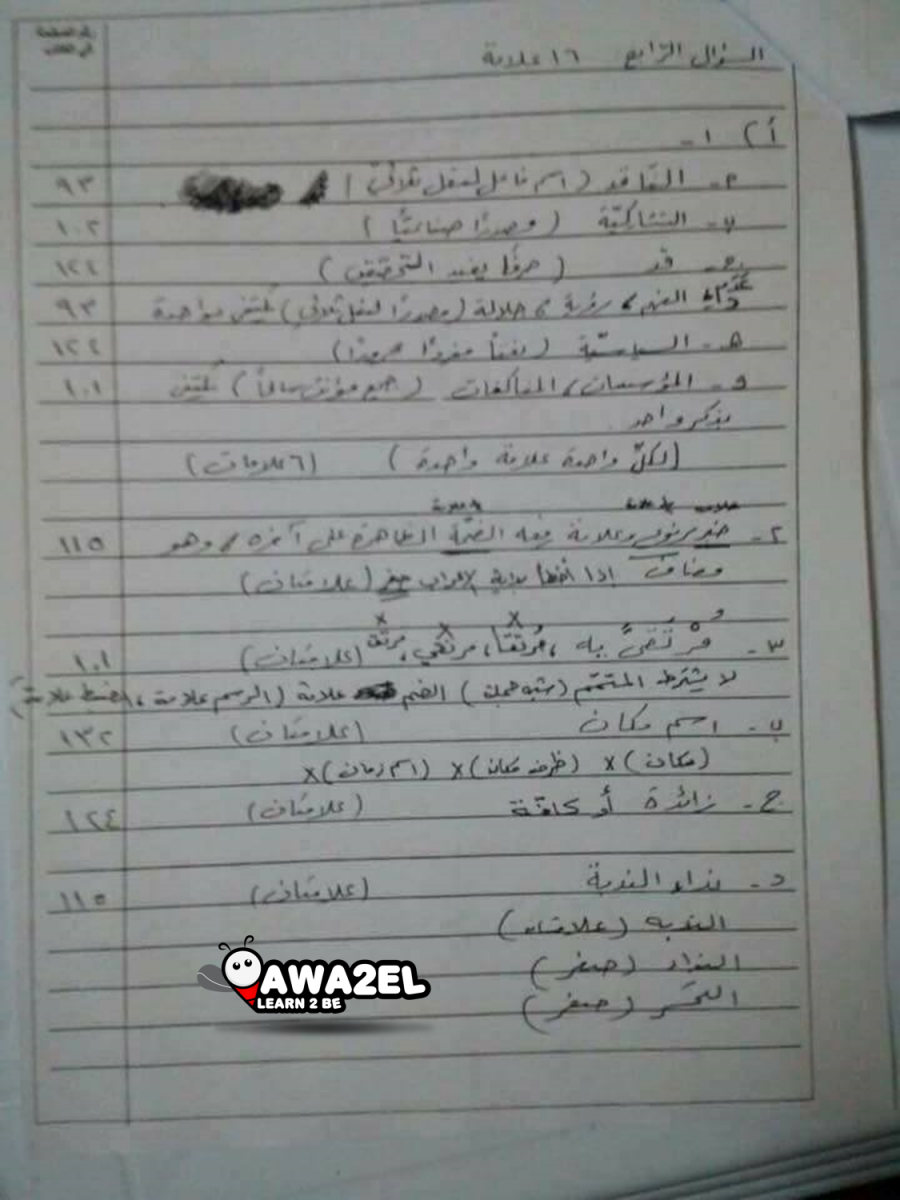 رقم الصفحة في الكتاب
السؤال الرابع ١٦ علامة
أ) ١-
٢- الناقد (اسم فاعل لفعل ثلاثي) ٩٣
ب- التشاركيّة (مصدرًا صناعيًّا) ١٠٢
ج- قد (حرفًا يفيد التحقيق) ١٢٤
د- الفهم، رؤية، دلالة (مصدرًا لفعل ثلاثي) يُكتفى بواحدة ٩٣
هـ- السياسيّة (نعتًا مفردًا مجرورًا) ١٢٤
و- المؤسسات، (جمع مؤنث سالمًا) يُكتفى ١٠١
بذكر واحد
(لكلّ واحدة علامة واحدة) (٦ علامات)
علامة علامة
٢- مرفوع وعلامة رفعه الضمّة الظاهرة على آخره، وهو ١١٥
مضاف إذا أخطأ بداية الإعراب صفر (علامتان)
x x x
٣- مُرْتَقىً به، مُرتقًا، مرتقي، مرتق (علامتان) ١٠١
لا يشترط المتمم (شبه جملة) الضم علامة (الرسم علامة، الضبط علامة)
ب- اسم مكان (علامتان) ١٣٢
(مكان) x (ظرف مكان) x (اسم زمان) x
ج- زائدة أو كافّة (علامتان) ١٢٤
د- نداء الندبة (علامتان) ١١٥
الندبة (علامتان)
النداء (صفر)
التحسّر (صفر)
AWA2EL
LEARN 2 BE